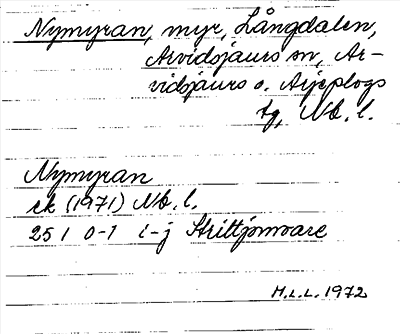 Nymyran, myr, Långdalen,
Arvidsjaurs sn, Ar-
vidsjaurs o. Arjeplogs
tg, Nb. l.
Nymyran
ek (1971) Nb. l.
25 I 0-1 i-j Strittjomvare
H.L.L. 1972